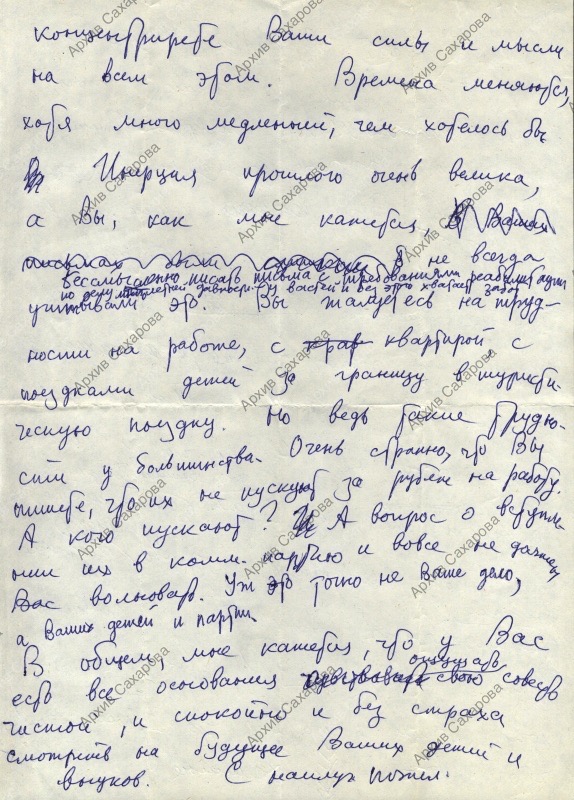 концентрируете Ваши силы и мысли
на всем этом. Времена меняются,
хотя много медленней, чем хотелось бы
Инерция прошлого очень велика,
а Вы, как мне кажется, в Ваших
письмах не всегда
Бессмысленно писать письма с требованиями реабилитации
по делу давности у властей и без этого хватает забот
учитывали это. Вы жалуетесь на труд-
ности на работе, с квартирой с
поездками детей за границу в туристи-
ческую поездку. Но ведь такие трудно-
сти у большинства. Очень странно, что Вы
пишете, что их не пускают за рубеж на работу.
А кого пускают? А вопрос о вступле-
нии их в комм. партию и вовсе не должен
Вас волновать. Уж это точно не Ваше дело,
а Ваших детей и партии.
В общем, мне кажется, что у Вас
ощущать
есть все основания чувствовать свою совесть
чистой, и спокойно и без страха
смотреть на будущее Ваших детей и
внуков. С наилуч пожел.
Архив Сахарова